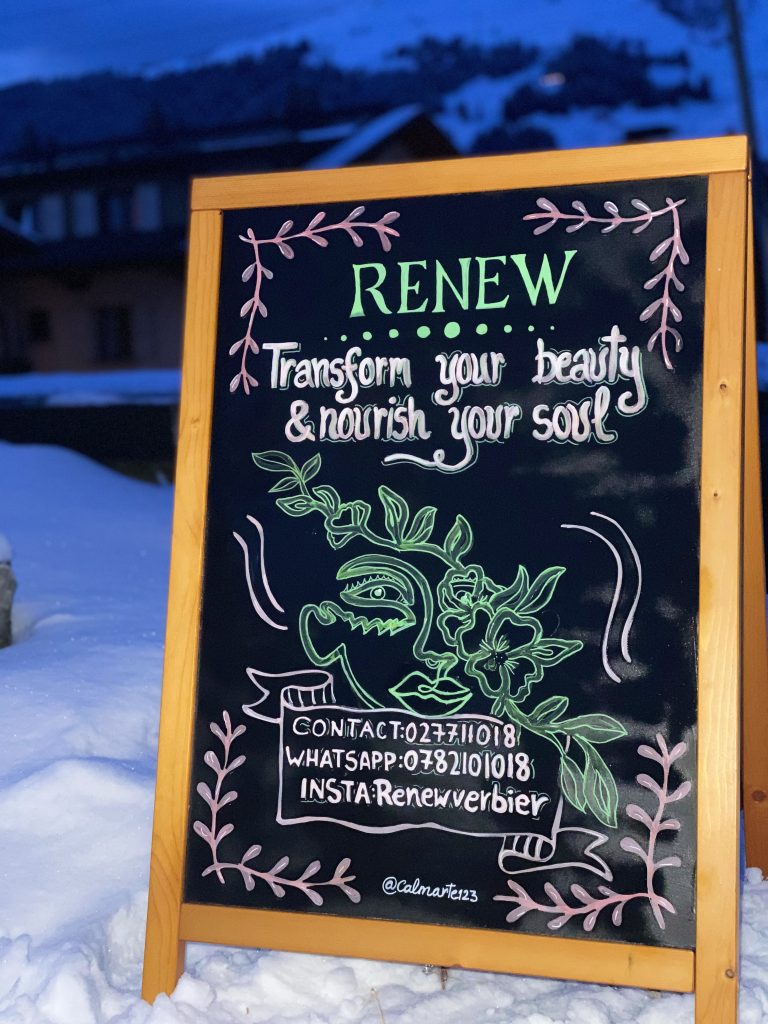 RENEW
Transform your beauty
& nourish your soul
CONTACT:027711018
WHATSAPP:0782101018
INSTA:Renewverbier
@calmarte123